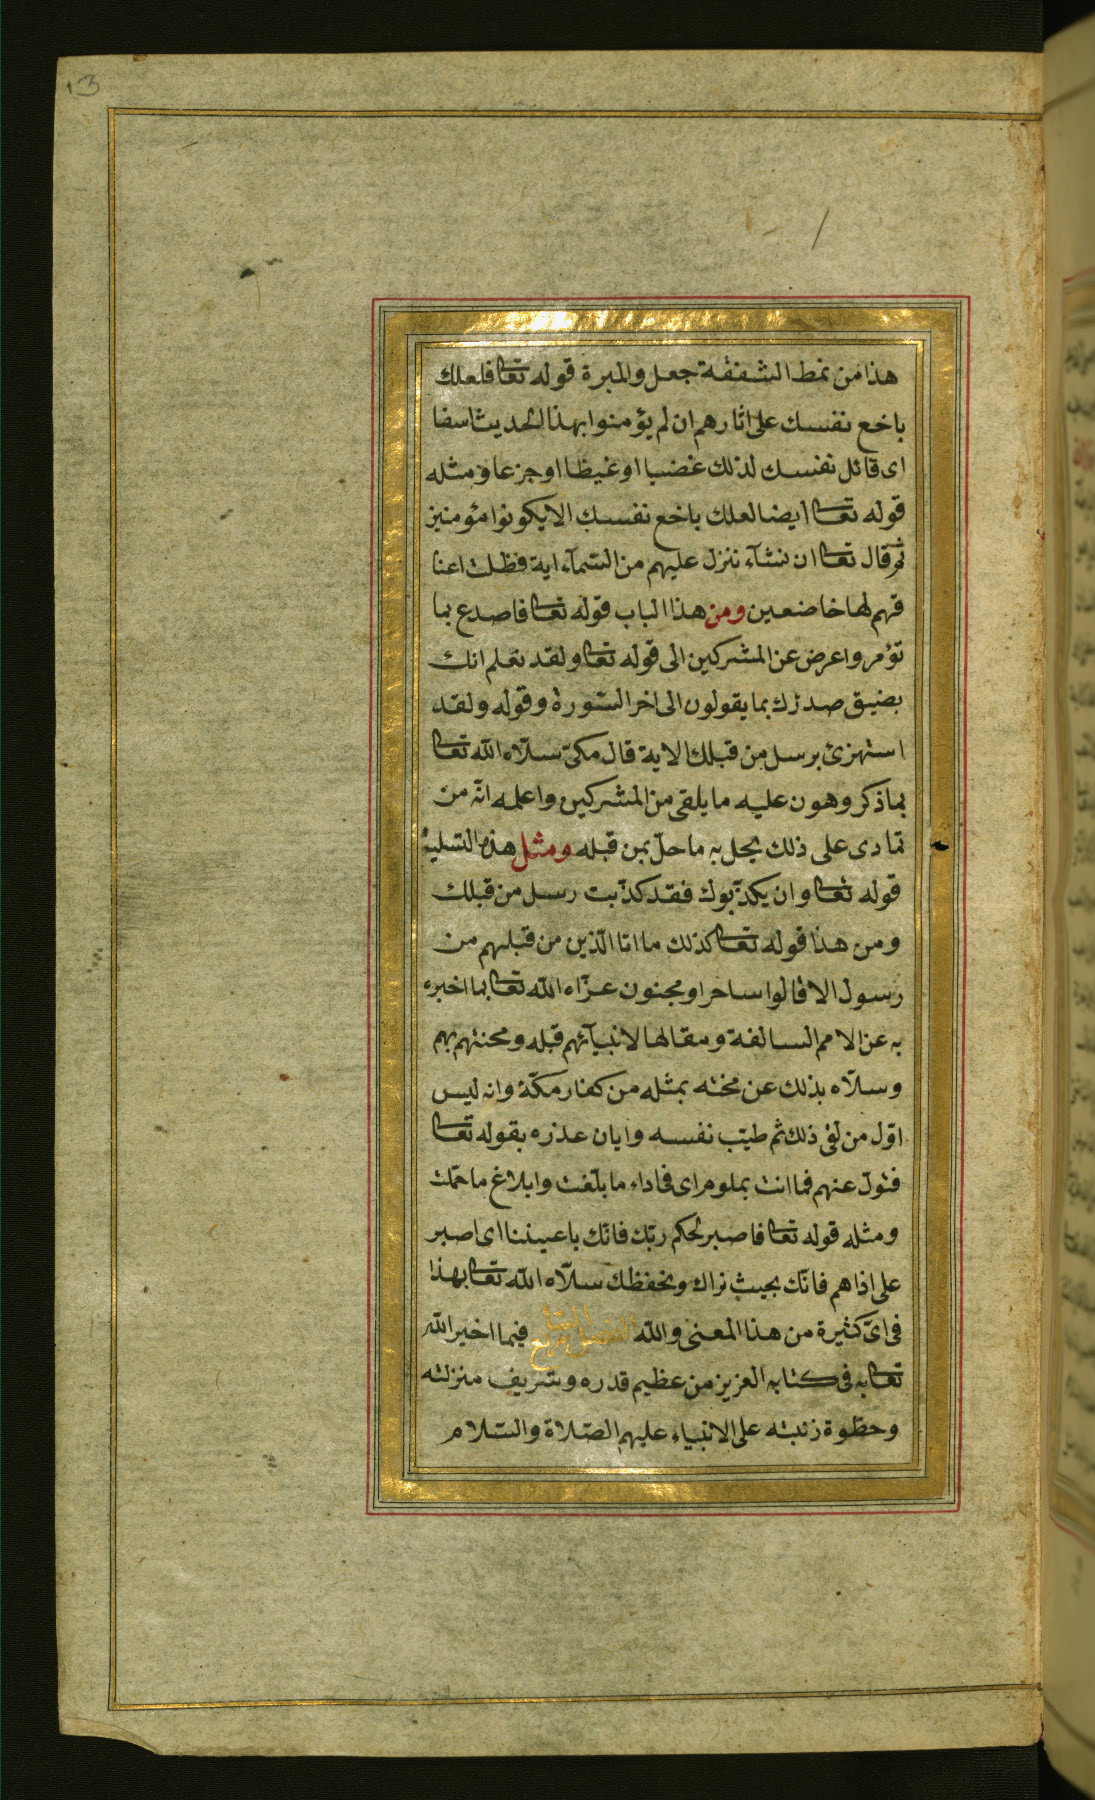 13
هذا من نمط الشفقة جعل والمبرة قوله تعا فلعلك
باخع نفسك على اثارهم ان لم يؤمنوا بهذا الحديث اسفا
اى قاتل نفسك لذلك غضبا او غيظا او جزعا ومثله
قوله تعا ايضا لعلك باخع نفسك الا يكونوا مؤمنين
ثم قال تعا ان نشآء ننزل عليهم من السمآء اية فظلت اعنا
قهم لها خاضعين ومن هذا الباب قوله تعا فاصدع بما
تؤمر واعرض عن المشركين الى قوله تعا ولقد نعلم انك
يضيق صدرك بما يقولون الى اخر السّورة وقوله ولقد
استهزئ برسل من قبلك الاية قال مكىّ سلّاه الله تعا
بما ذكر وهون عليه ما يلقى من المشركين واعلمه انّه من
تمادى على ذلك يحل به ما حلّ بمن قبله ومثل هذه التسلية
قوله تعا وان يكذّبوك فقد كذّبت رسل من قبلك
ومن هذا قوله تعا كذلك ما اتا الّذين من قبلهم من
رسول الا قالوا ساحر او مجنون عزّاه الله تعا بما اخبره
به عن الامم السالفة ومقالها لانبيآئهم قبله ومحنتهم بهم
وسلّاه بذلك عن محنته بمثله من كفار مكّة وانه ليس
اوّل من لقى ذلك ثم طيّب نفسه وابان عذره بقوله تعا
فتولّ عنهم فما انت بملوم اى فى اداء ما بلّغت وابلاغ ما حمّلت
ومثله قوله تعا فاصبر لحكم ربّك فانّك باعيننا اى اصبر
على اذاهم فانّك بحيث نراك ونحفظك سلّاه الله تعا بهذا
فى اىّ كثيرة من هذا المعنى والله الفصل السابع فيما اخبر الله
تعا به فى كتابه العزيز من عظيم قدره وشريف منزلته
وحظوة رتبته على الانبياء عليهم الصّلاة والسّلام